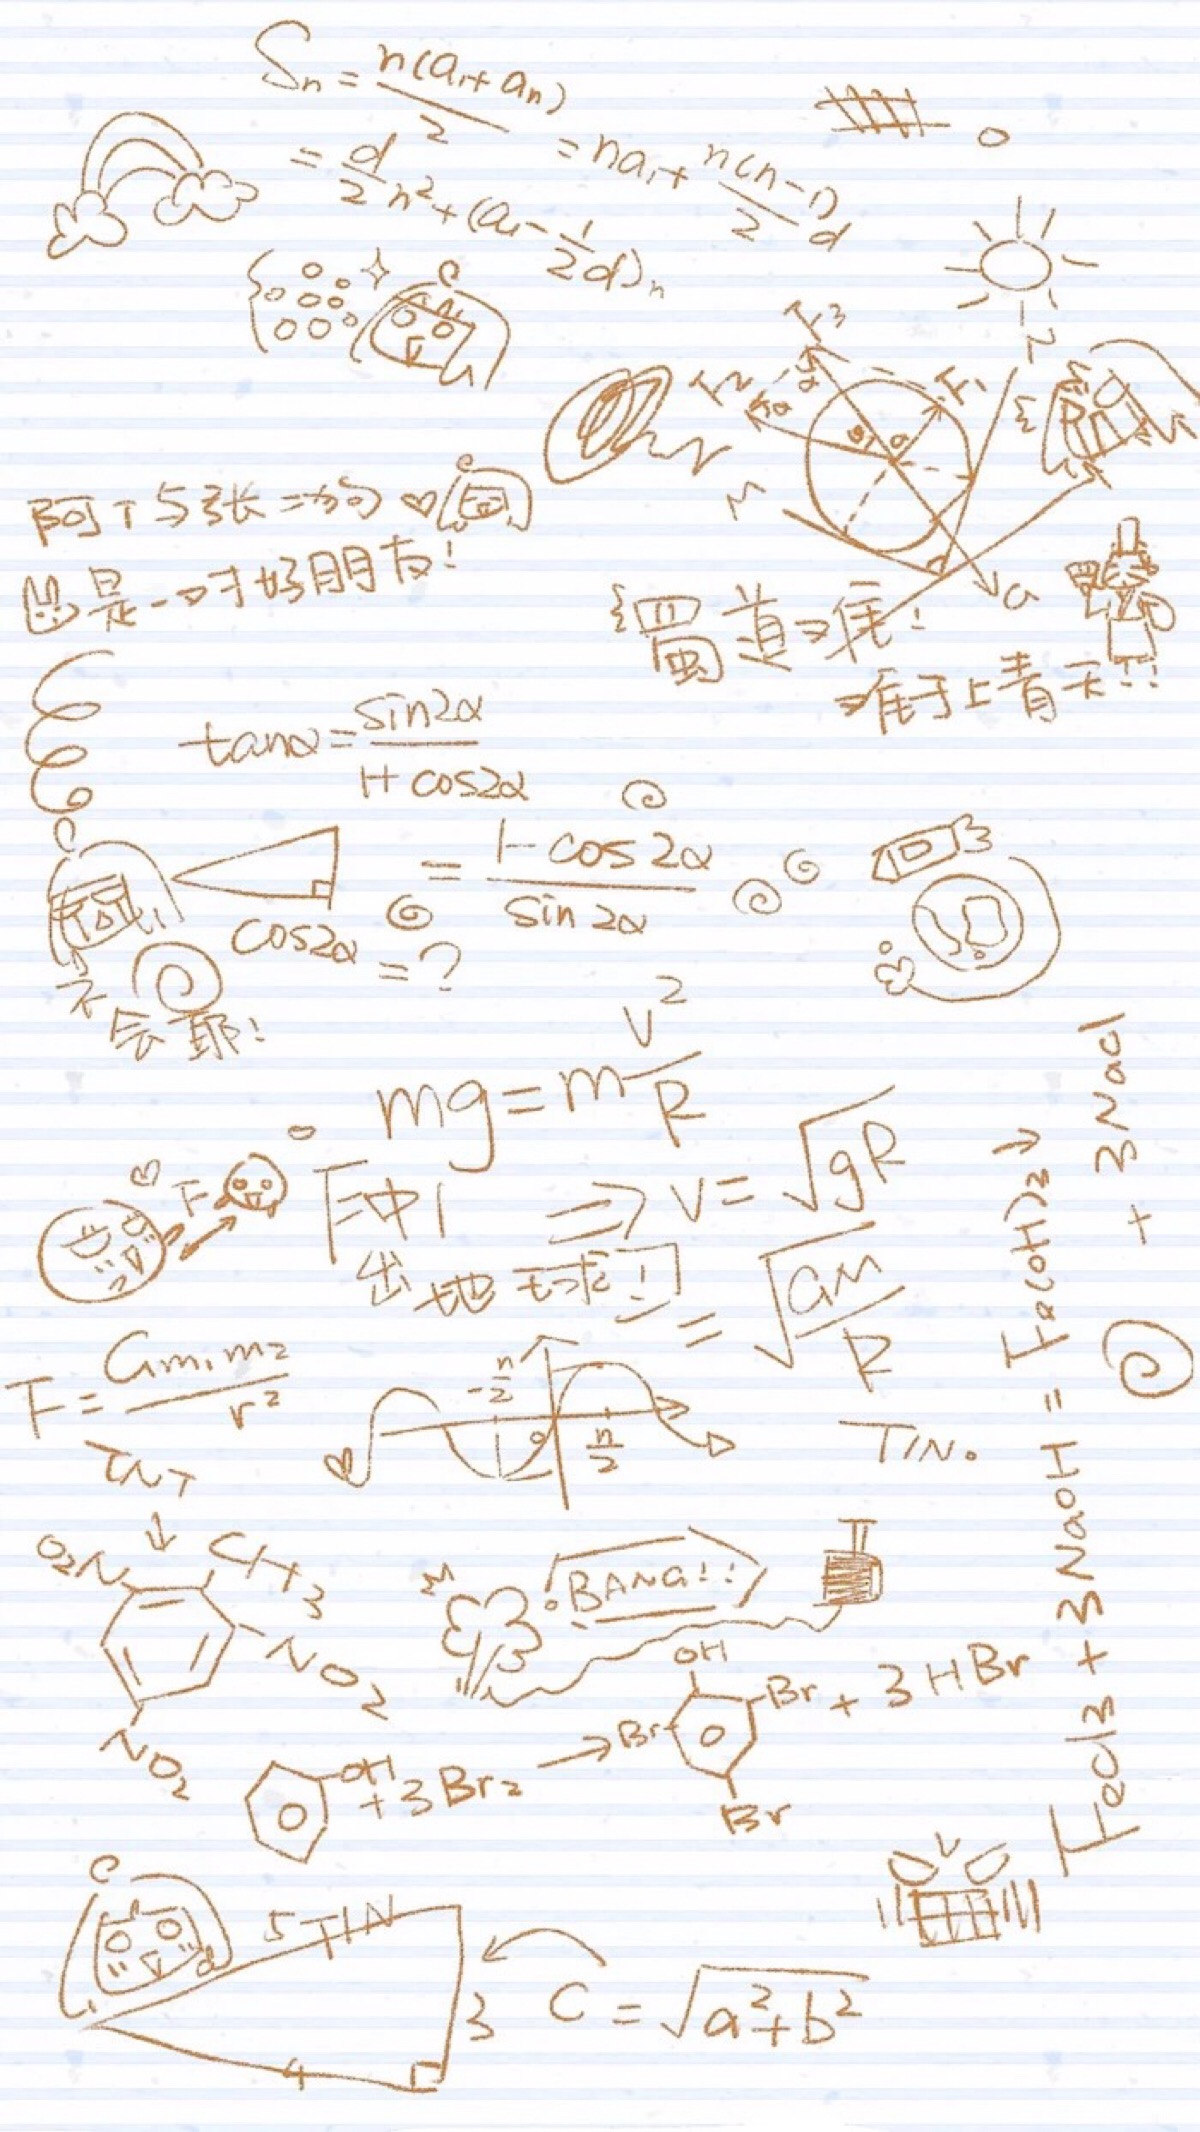 Sn = n(a₁+an)/2
= na₁ + n(n-1)/2 d
= d/2 n² + (a₁ - 1/2 d)n
F3
F2
F1
M
G
阿丁与张二狗
是一对好朋友!
蜀道难!
难于上青天!!
tanα = sin2α/1+cos2α
= 1-cos2α/sin2α
cos2α = ?
不会耶!
mg = m v²/R
⇒ v = √gR
= √GM/R
F
「冲!
出地球!」
F = Gm₁m₂/r²
-π/2
0
π/2
TIN.
TNT
↓
O₂N
CH₃
NO₂
NO₂
BANG!!
OH
+ 3Br₂
→
OH
Br
Br
Br
+ 3HBr
FeCl3 + 3NaOH = Fe(OH)₂ ↓ + 3NaCl
5 TIN
3
4
C = √a²+b²